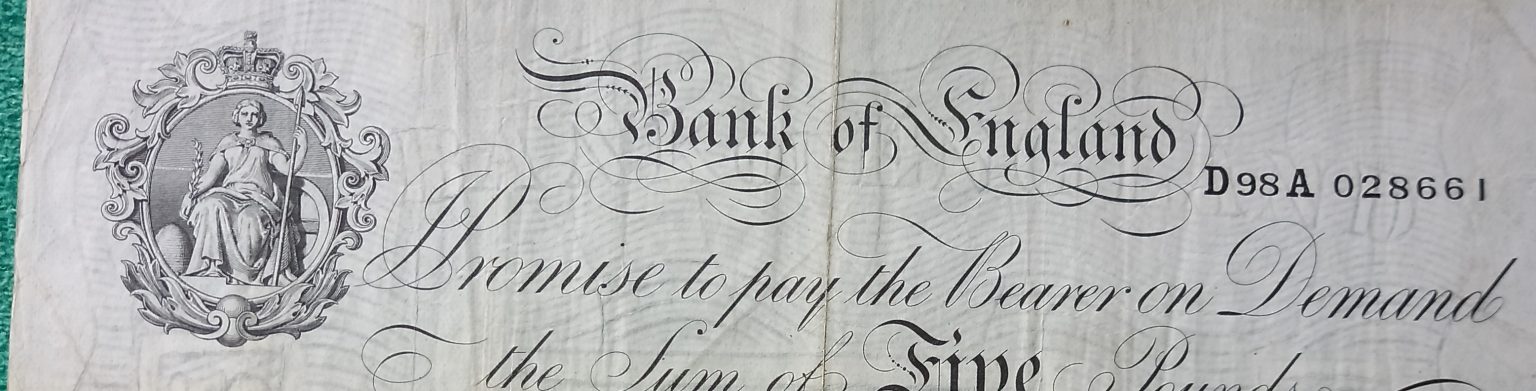 Bank of England
D98A 028661
I Promise to pay the Bearer on Demand
the Sum of Five Pounds